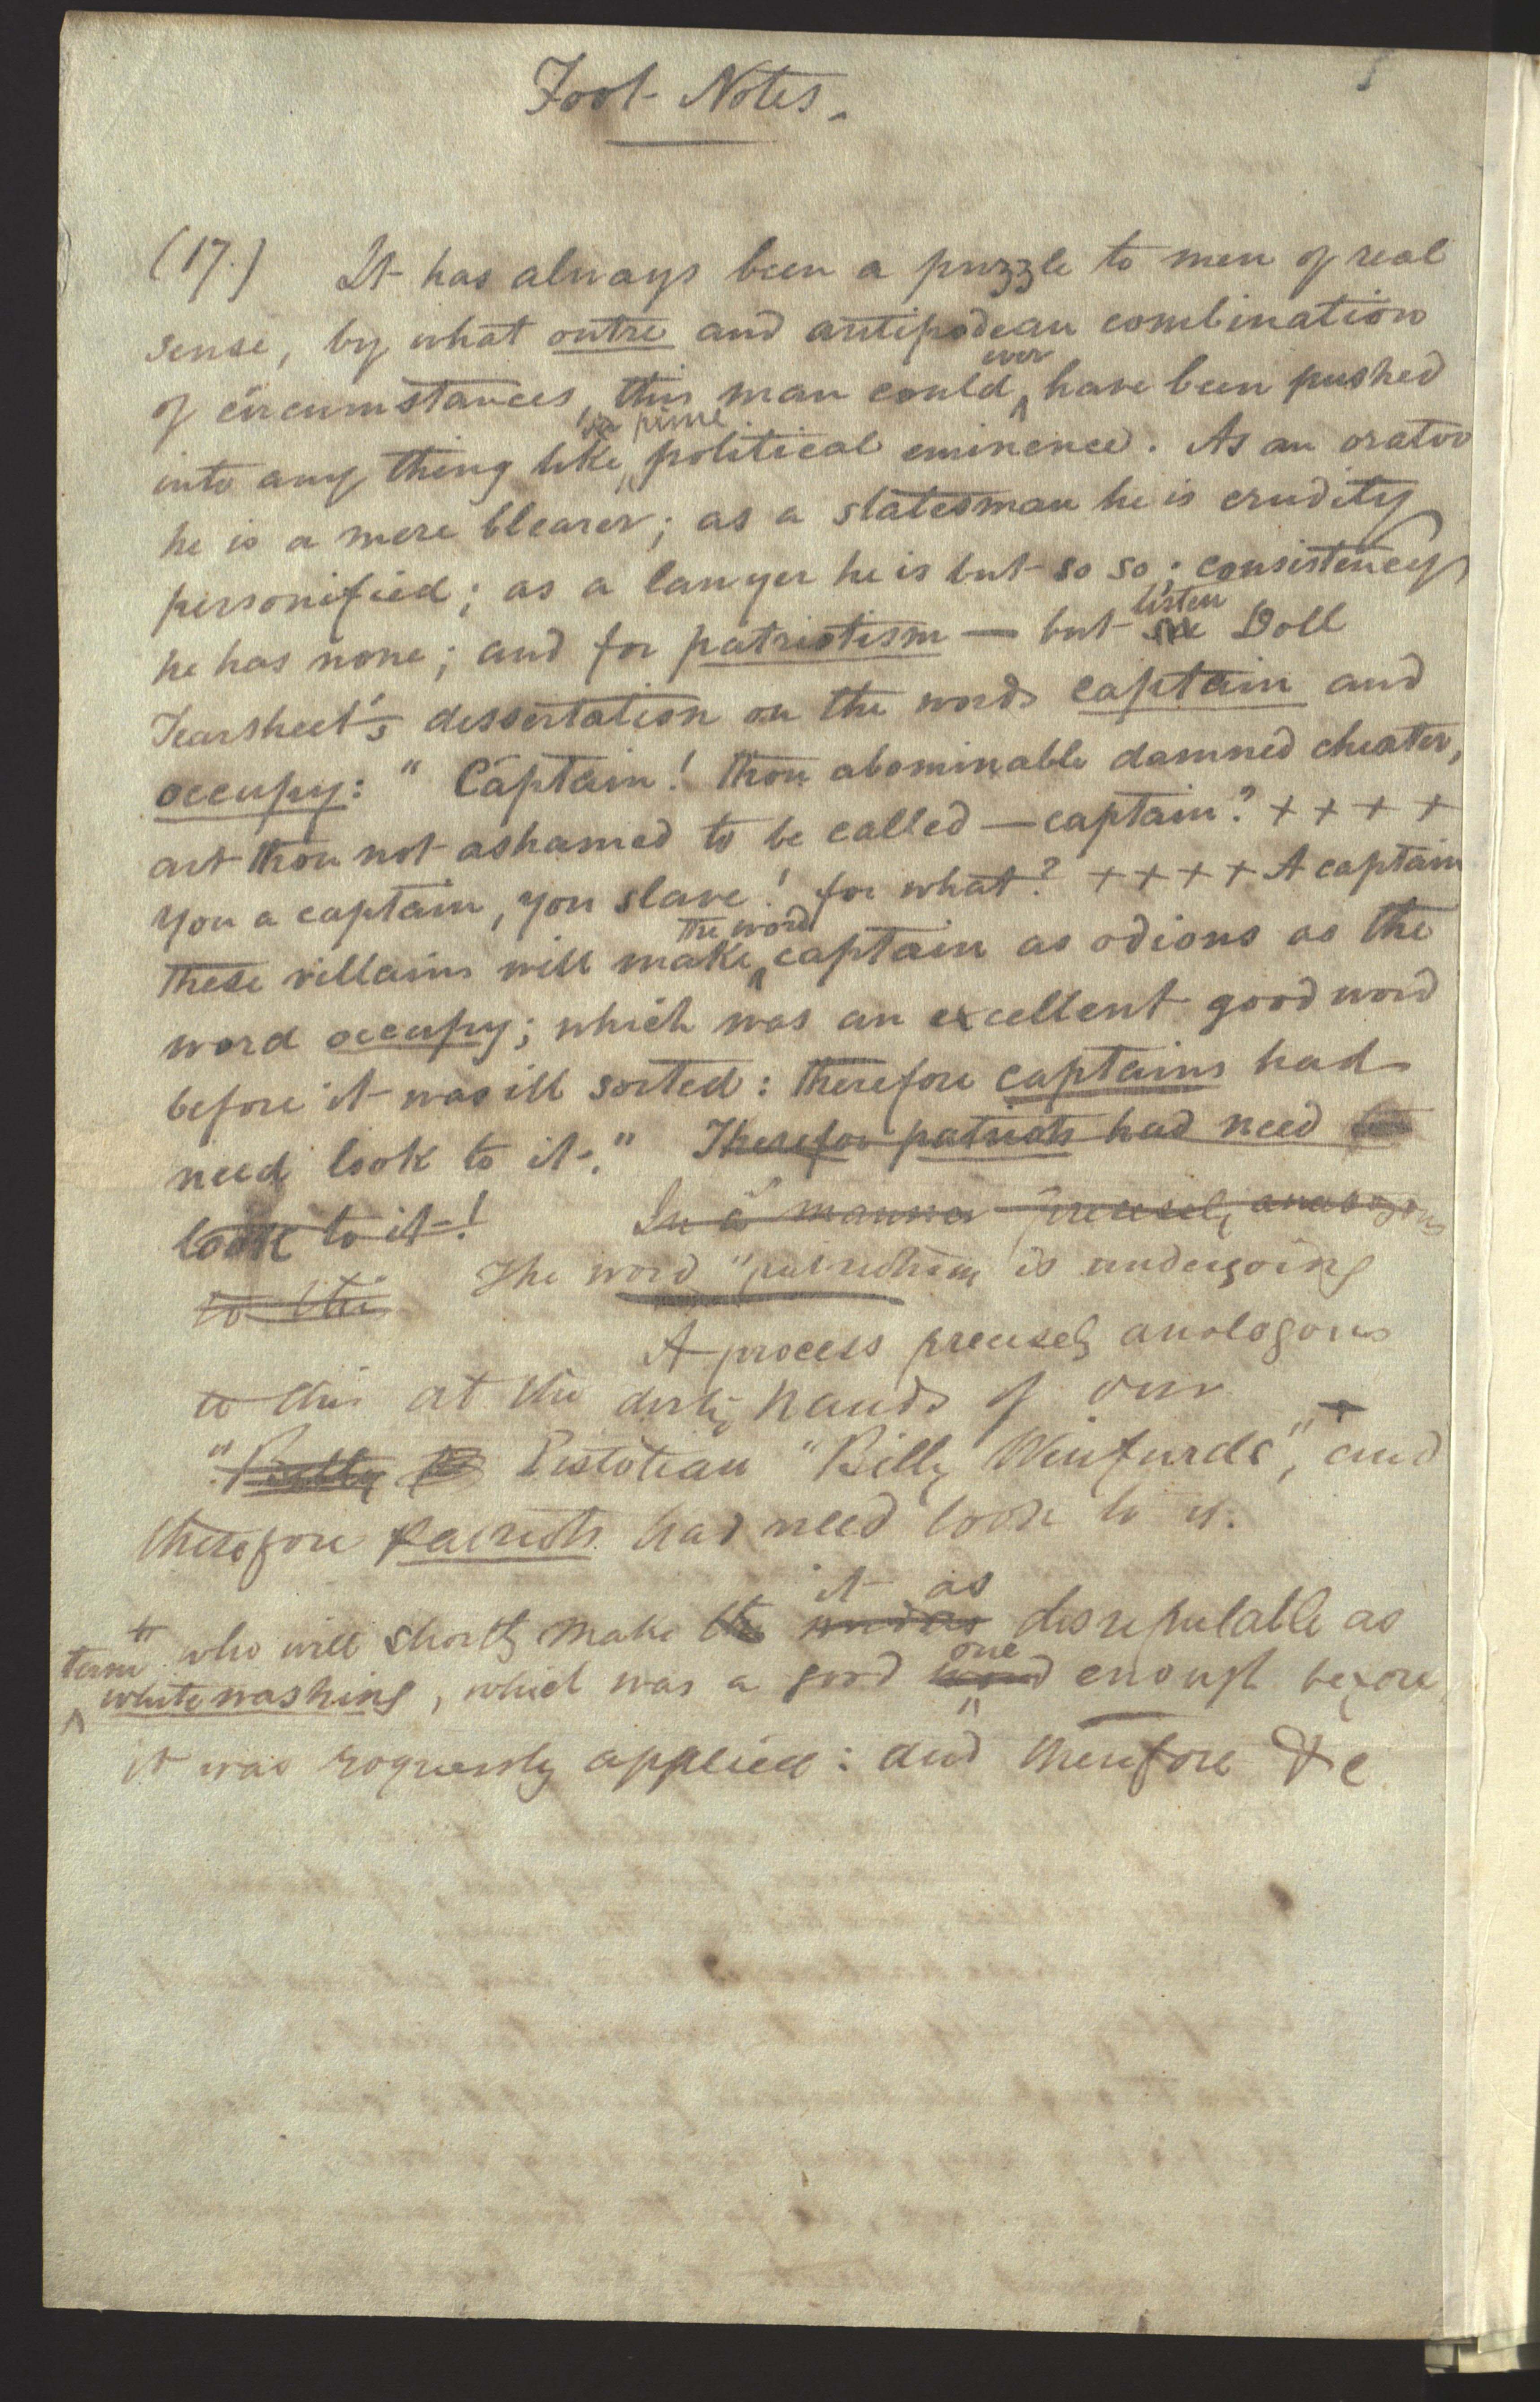 Foot-Notes.
(17.) It has always been a puzzle to men of real
sense, by what outre and antipodean combination
ever
of circumstances, this man could have been pushed
into any thing like political eminence. As an orator
he is a mere blearer; as a statesman he is crudity
personified; as a lawyer he is but so so; consistency
listen
he has none; and for patriotism — but see Doll
Tearsheet's dissertation on the words captain and
occupy: " Captain! thou abominable damned cheater,
art thou not ashamed to be called — captain? + + + +
You a captain, you slave! for what? + + + + A captain
the word
these villains will make captain as odious as the
word occupy; which was an excellent good word
before it was ill sorted: therefore captains had
need look to it." Therefor patriots had need to
look to it!  In a manner precisely analogous
to this The word "patriotism is undergoing
A process precisely analogous
to this at the dirty hands of our
Pistolean "Billy Winfurds", and
therefore patriots had need look to it.
it as
who will shortly make the word as disreputable as
term one
whitewashing, which was a good word enough before
it was roguously applied: and therefore &c